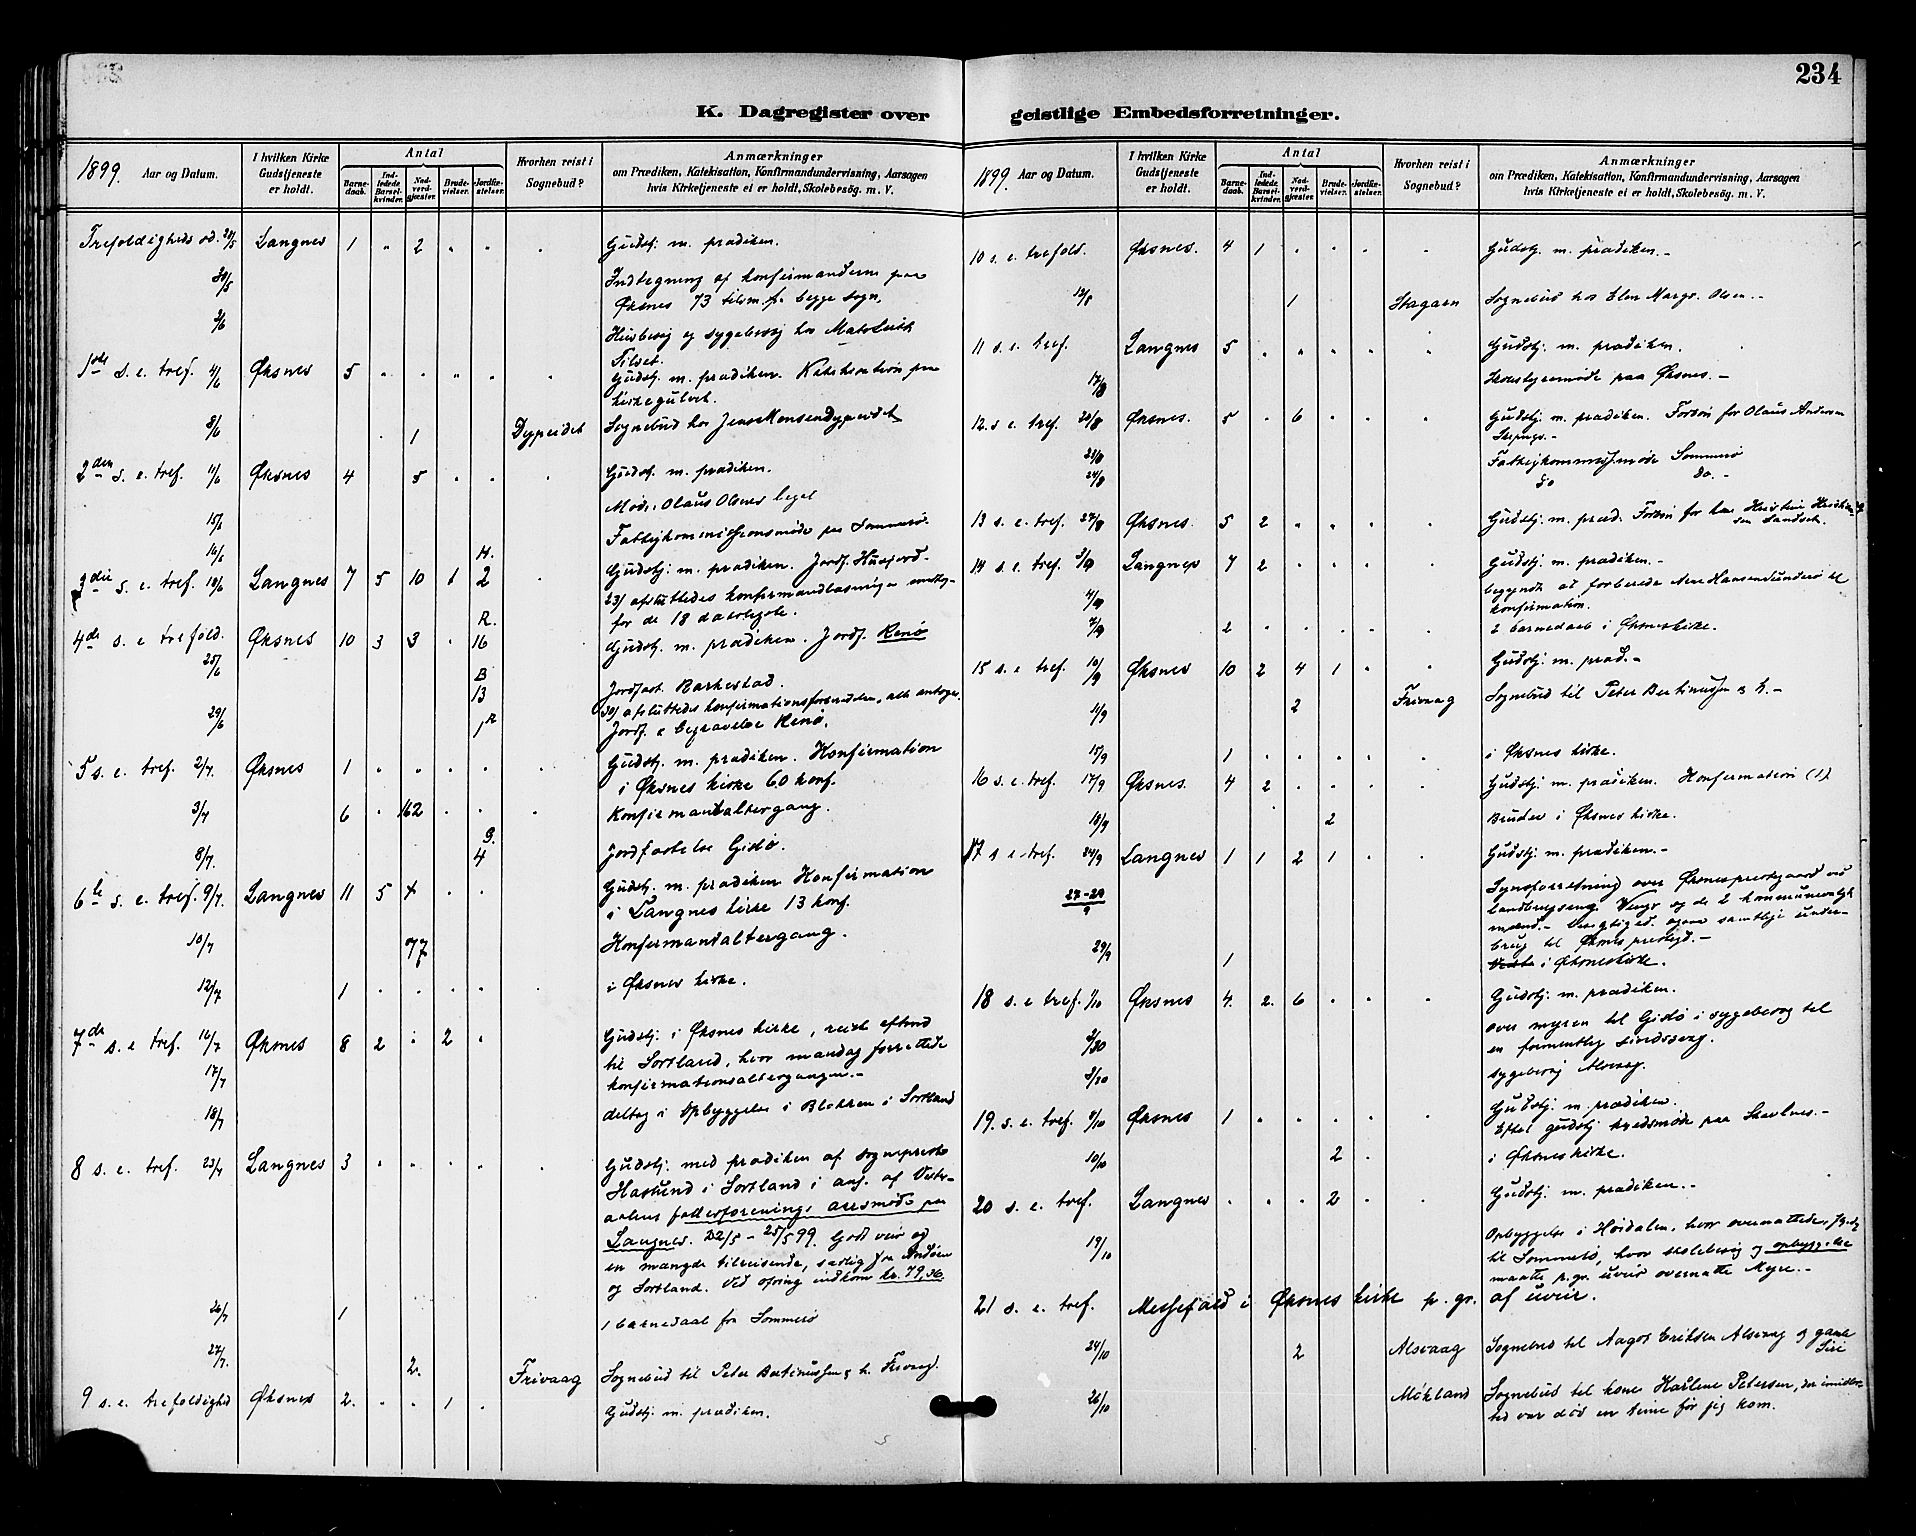 234
K. Dagregister over geistlige Embedsforretninger.
1899. Aar og Datum. I hvilken Kirke Gudstjeneste er holdt. Antal Barnedaab. Indledede Barselkvinder. Nadverdgjæster. Brudevielser. Jordfæstelser. Hvorhen reist i Sognebud? Anmærkninger om Prædiken, Katekisation, Konfirmandundervisning, Aarsagen hvis Kirketjeneste ei er holdt, Skolebesøg. m. V.
Trefoldigheds sd. 28/5 Langnes 1 " 2 " " " Gudstj. m. prædiken.
30/5 Indtegning af konfirmanderne paa
Øksnes 73 tilsm. fr. begge sogn.
2/6 Husbesøg og sygebesøg hos
Tilset.
1ste s. e. tref. 4/6 Øksnes 5 " " " " " Gudstj. m. prædiken. Katekisation paa
kirkegulvet.
8/6 1 Dypeidet Sognebud hos Jens Monsen Dypeidet
2den s. e. tref. 11/6 Øksnes 4 5 " " " Gudst. m. prædiken.
Mods. Olaus Olsnes
15/6 Fattigkommissionsmøde paa Sommerø.
16/6
3die s. e. tref. 18/6 Langnes 7 5 10 1 H. 2 Gudstj. m. prædiken. Jordf.
23/ afsluttedes konfirmandlæsningen
for de 18
4de s. e. trefold. 25/6 Øksnes 10 3 3 " R. 16 Gudstj. m. prædiken. Jordf. Renø
B 13 Jordfæst. Barkestad.
29/6 R 30/ afsluttedes konfirmationsforberedelsen, alle antoges.
Jordf. & begravelse Renø.
5 s. e. tref. 2/7. Øksnes 1 " " " " " Gudstj. m. prædiken. Konfirmation
i Øksnes kirke 60 konf.
3/7 6 " 162 " " " Konfirmantaltergang.
8/7. G. 4 jordfæstelse Gisø.
6te s. e. tref. 9/7. Langnes 11 5 4 " " Gudstj. m. prædiken Konfirmation
i Langnes kirke 13 konf.
10/7 77 Konfirmantaltergang.
12/7 1 " " " " " i Øksnes kirke.
7de s. e tref. 16/7 Øksnes 8 2 " 2 " Gudstj. i Øksnes kirke, reiste
17/7 til Sortland, hvor mandag forrettede
konfirmationsaltergangen.-
18/7 deltog i opbyggelse i Blokken i Sortland
8 s. e. tref. 23/7 Langnes 3 " " " " " Gudstj. med prædiken af sogneprest
Haslund i Sortland i anl. af Vester-
aalens aarsmøde paa
Langnes. 22/5 - 25/5 99. Godt veir og
en mængde tilreisende, særlig fra Andøen
og Sortland. Ved ofring indkom kr. 79,36.
26/7 1 1 barnedaab fra Sommerø
27/7. 2. Frivaag Sognebud til Peter Bertinussen & h. Frivaag.
9 s. e. trefoldighed Øksnes 2. " " 1 " Gudstj. m. prædiken.
1899 Aar og Datum. I hvilken Kirke Gudstjeneste er holdt. Antal Barnedaab. Indledede Barselkvinder. Nadverdgjæster. Brudevielser. Jordfæstelser. Hvorhen reist i Sognebud? Anmærkninger om Prædiken, Katekisation, Konfirmandundervisning, Aarsagen hvis Kirketjeneste ei er holdt, Skolebesøg. m. V.
10 s. e. trefold. Øksnes. 4 1 " " " " Gudstj. m. prædiken.-
12/8 1 Sognebud hos Elen Margr. Olsen.-
11 s. e. tref. Langnes 5 " " " " " Gudstj. m. prædiken.
17/8 Skolestyremøde paa Øksnes.-
12. s. e. tref. 20/8 Øksnes. 5 " 6 " " " Gudstj. m. prædiken. Forbøn for Olaus Andersen
21/8 Fattigkommss.møde Sommerø
24/8 do do.-
13 s. e. tref. 27/8 Øksnes. 5 2 " " " " Gudstj. m. præd. Forbøn for
14 s. e. tref. 3/9 Langnes 7 2 " " " " Gudstj. m. prædiken.-
4/9 begyndt at forberede til
konfirmation.
7/9 2 " " " " " 2 barnedaab i Øksneskirke.
15 s. e tref. 10/9 Øksnes 10 2 4 1 " " Gudstj. m. præd.-
11/9 2 Frivaag Sognebud til Peter Bertinussen & h.-
15/9 1 " " " " " i Øksnes kirke.
16 s. e. tref. 17/9 Øksnes. 4 2 " " " " Gudstj. m. prædiken. Konfirmation (1).
18/9 2 Bruder i Øksnes kirke.
17 s. e. tref. 24/9 Langnes 1 1 2 1 " " Gudstj. m. prædiken.-
27-29/9 Synsforretning over Øksnes prestgaard ved
og de 2 kommunevalgte
mænd.- samtlige under-
brug til Øksnes prestegd.-
29/9 1 i Øksneskirke.
18 s. e tref 1/10 Øksnes 4. 2. 6 " " " Gudstj. m. prædiken.
over myren til Gisø i sygebesøg til
en formentlig sindssyg.
3/10 sygebesøg Alsvaag.
19. s. e. tref. 8/10 Øksnes 1 " " " " " Gudstj. m. prædiken.
Efter gudstj. kredsmøde paa Skovlnes.-
10/10 2 " i Øksneskirke.
20 s. e. tref. Langnes " " " 2 " " Gudstj. m. prædiken.-
19/10 Opbyggelse i Høidalen, hvor overnattede,
til Sommerø, hvor skolebesøg og opbyggelse
maatte p. gr. uveir overnatte Myre.-
21 s. e. tref. Messefald i Øksnes kirke p. gr. af uveir.
24/10 2 Alsvaag Sognebud til Aagot Eriksen Alsvaag og gamle
Siri
26/10 Møkland Sognebud til kone Karlene Petersen, der imidler-
tid var død en time før jeg kom.